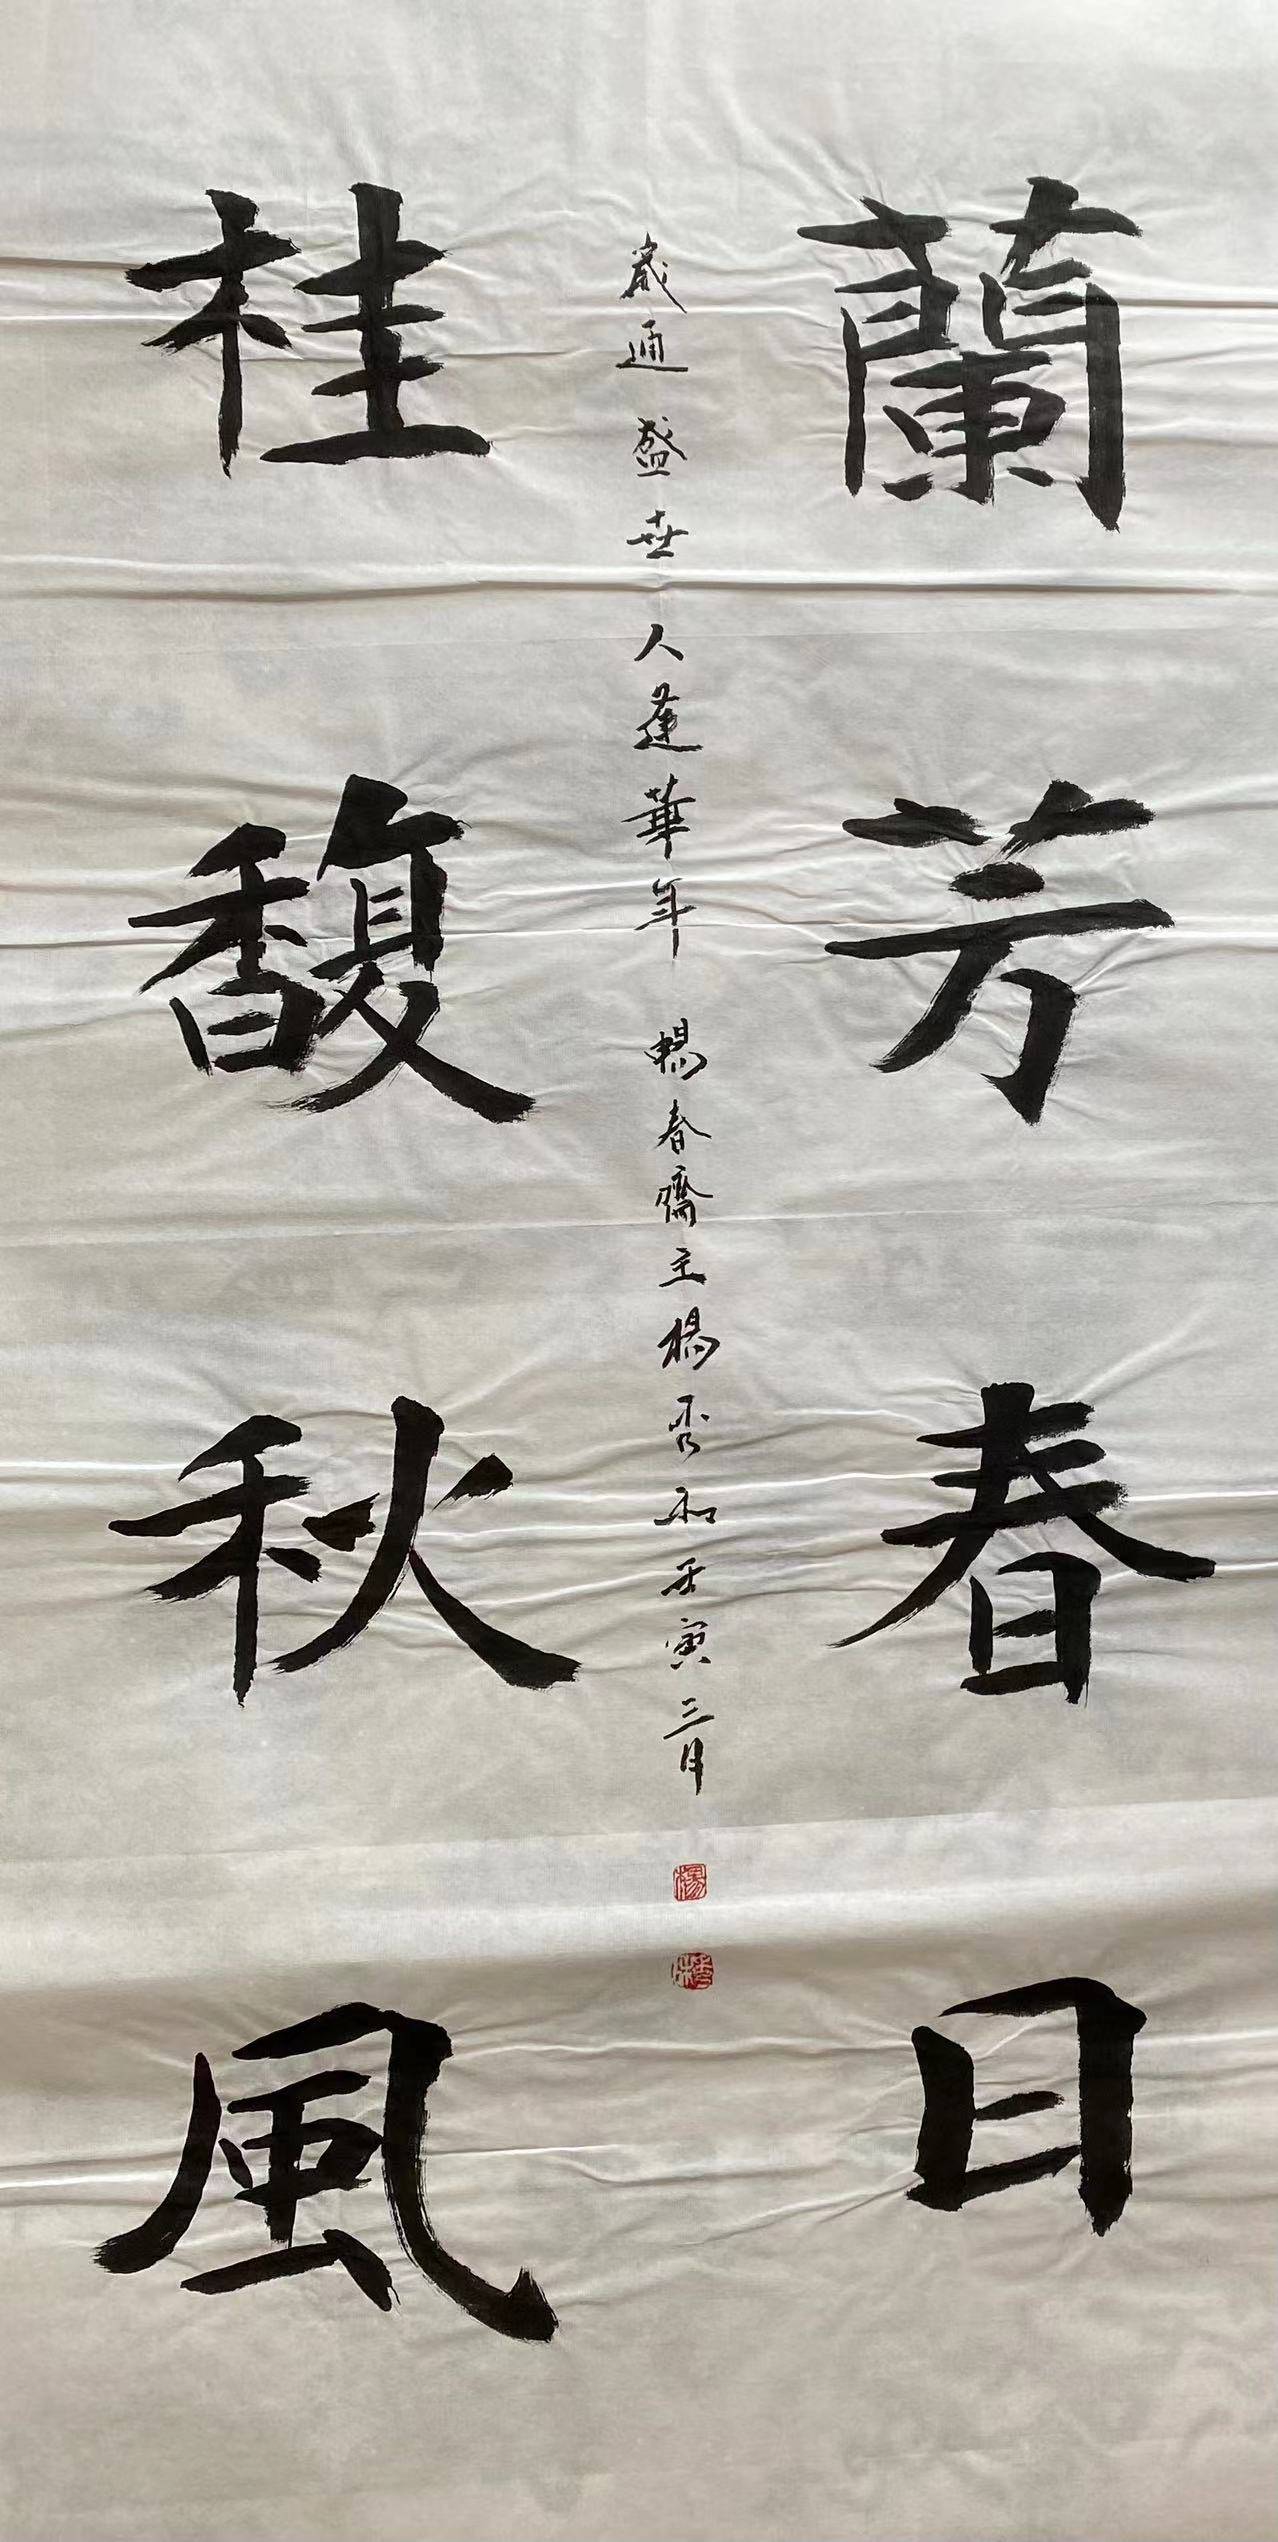 蘭芳春日
桂馥秋風
歲通盛世人蓬華年暢春齋主楊秀和壬寅三月
楊